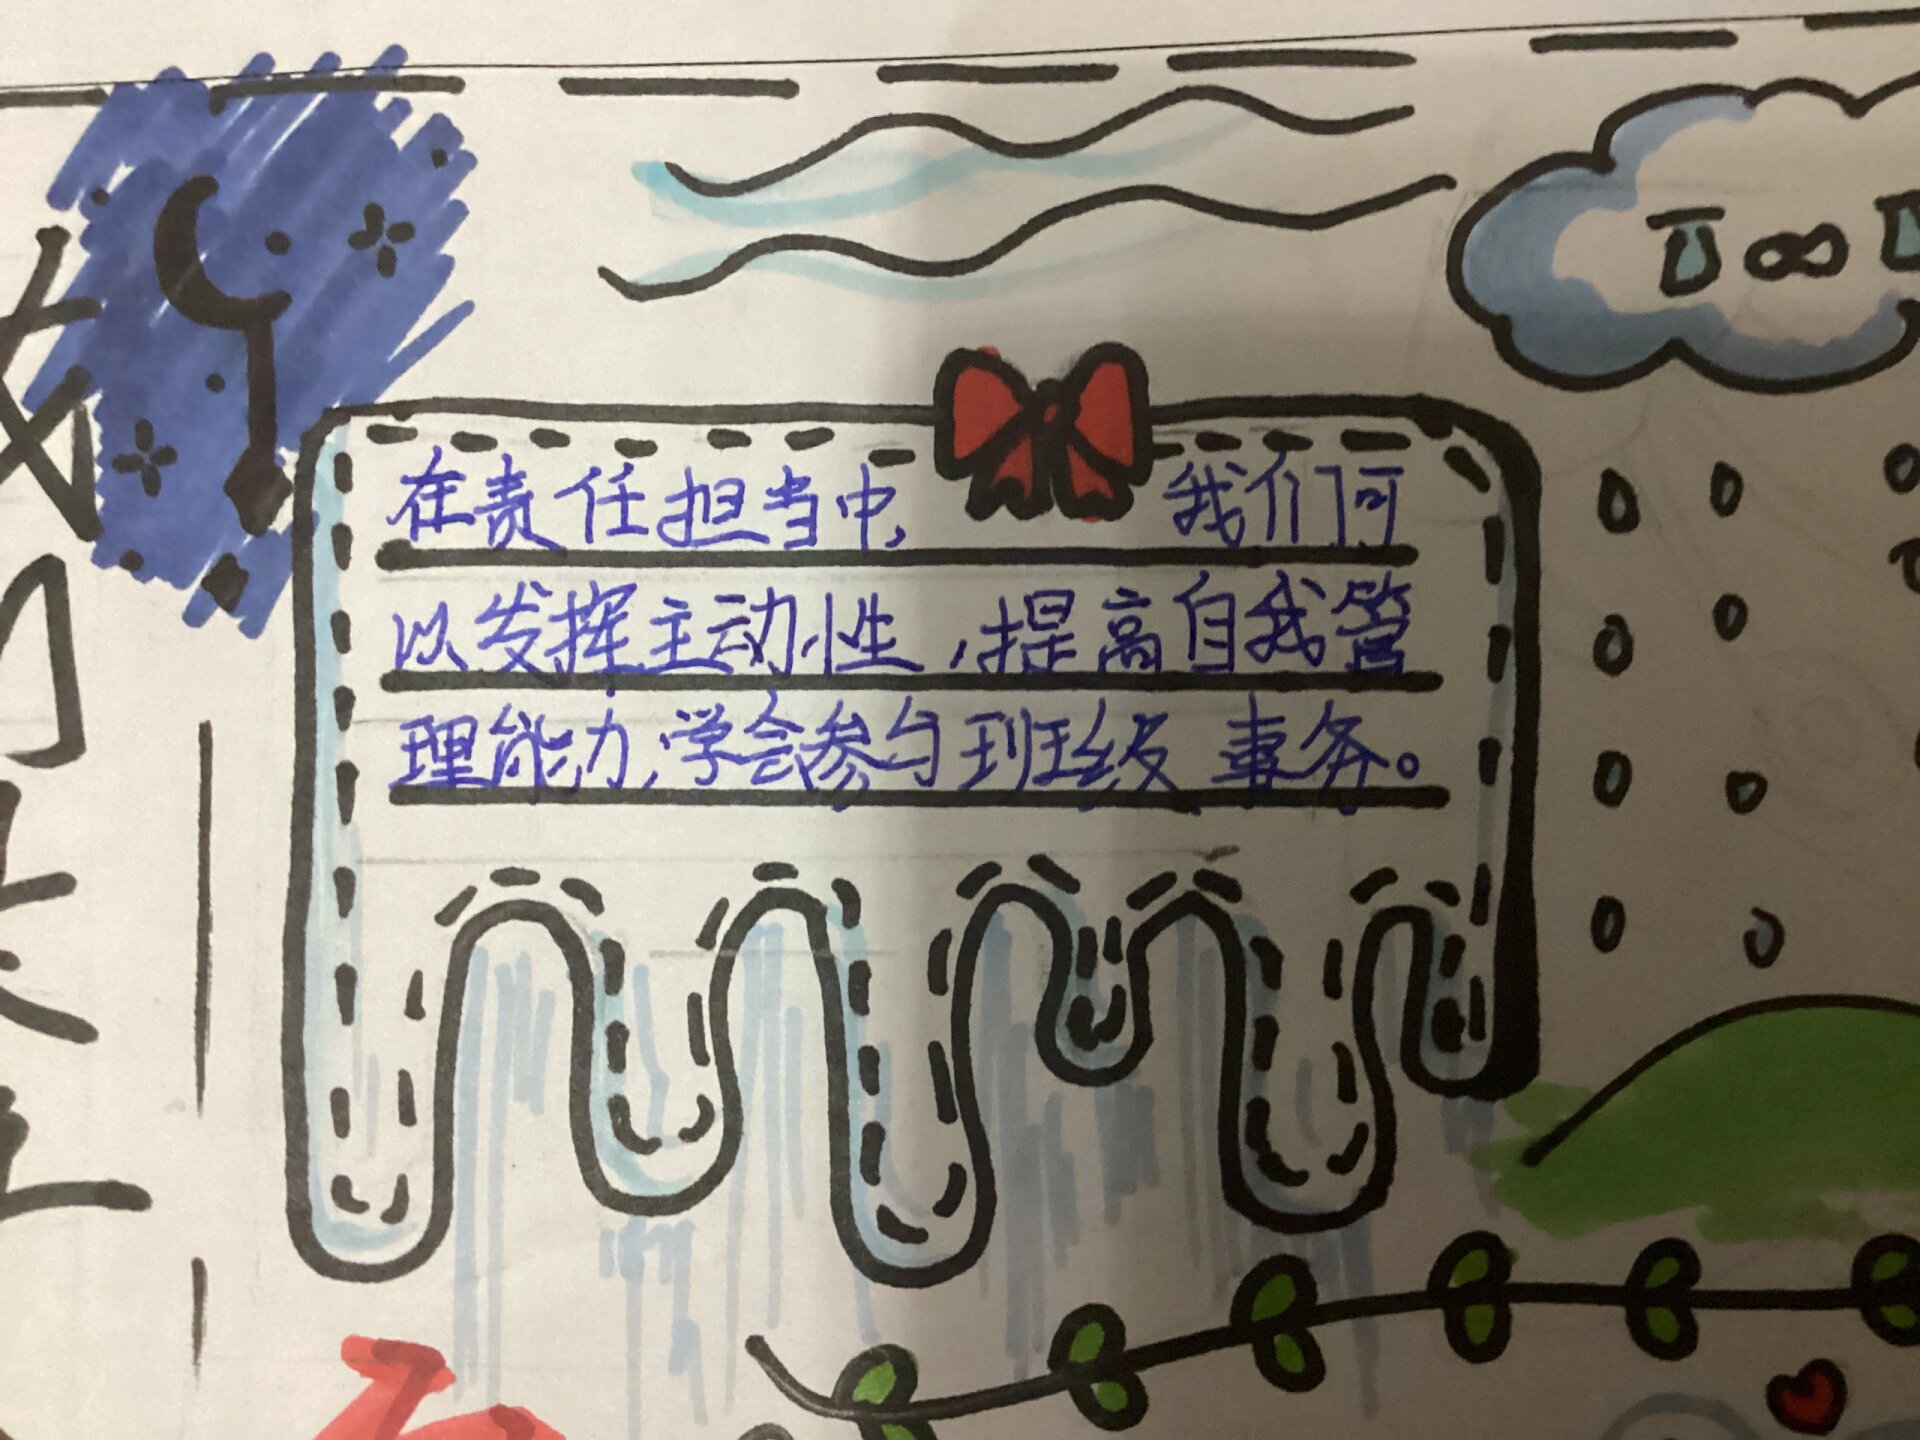 在责任担当中,我们可
以发挥主动性,提高自我管
理能力,学会参与班级事务。